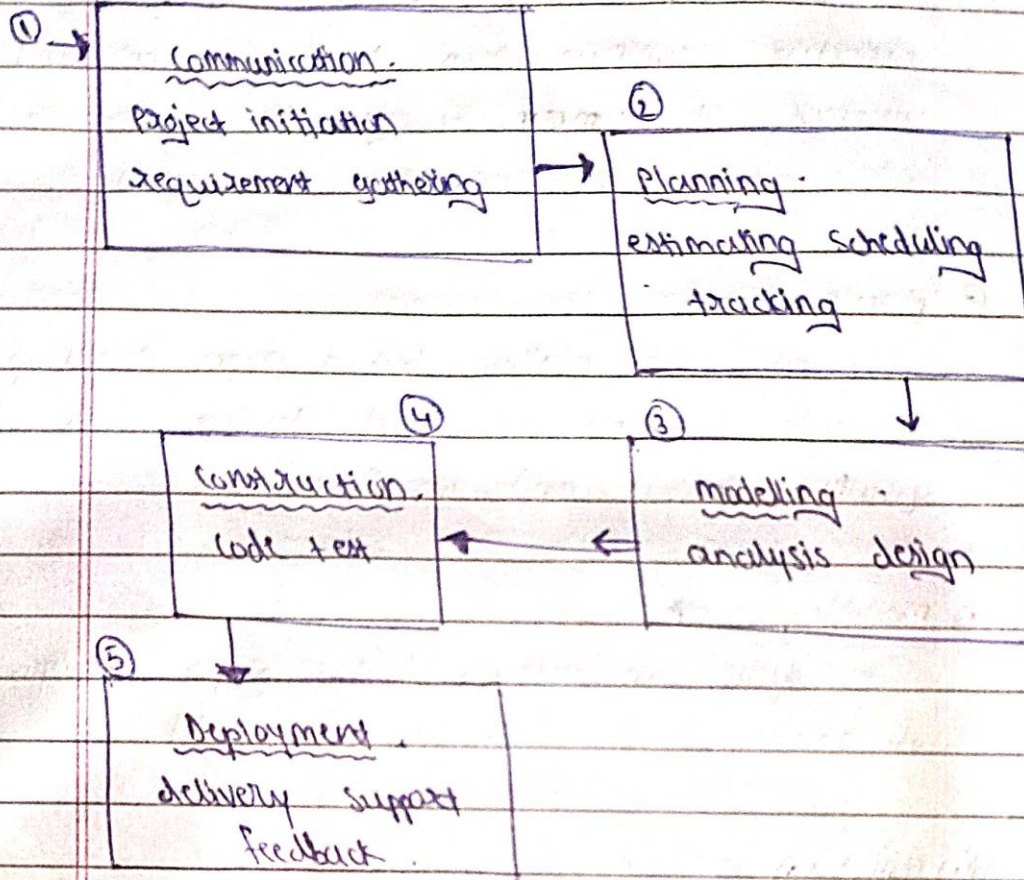 ①
Communication.
Project initiation
requirement gathering
②
Planning.
estimating scheduling
tracking
③
modelling.
analysis design
④
Construction.
code test
⑤
Deployment.
delivery support
feedback